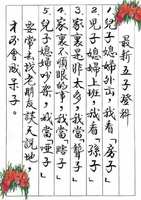 最新五子登科
1、兒子媳婦外出，我看「房子」
2、兒子媳婦上班，我看「孫子」
3、家裏是非太多，我當「聾子」
4、家裏不順眼的事，我當「瞎子」
5、媳婦吵架，我當「啞子」
要常去找老朋友談天說地，
才不會成呆子。